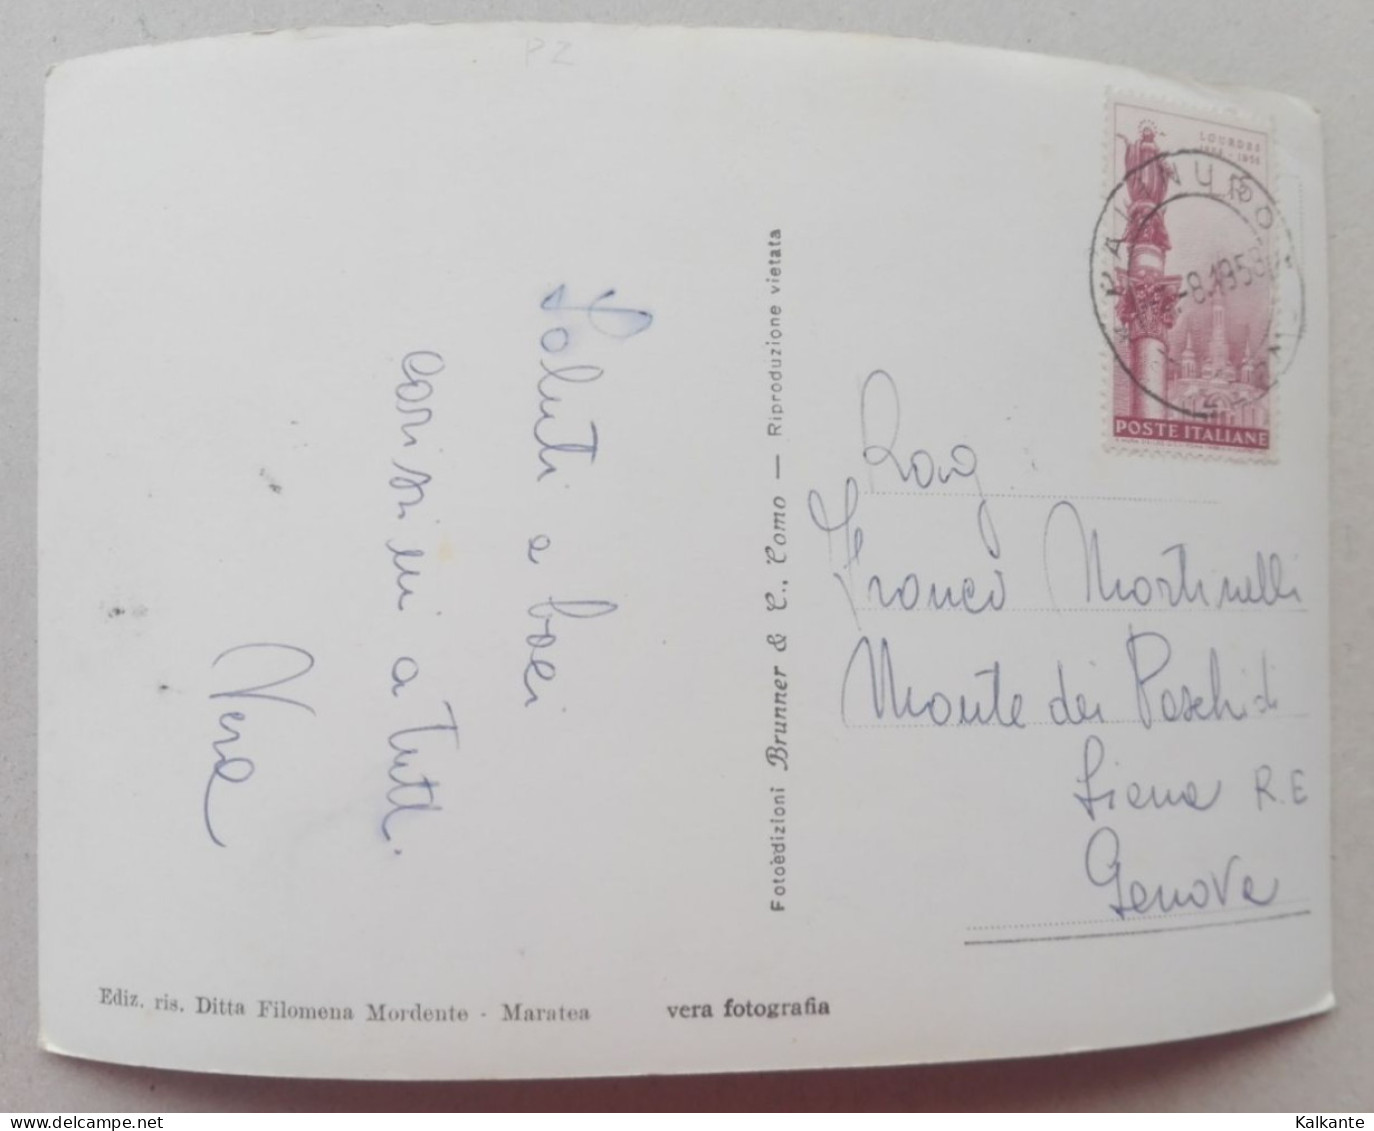 PZ
Saluti e baci
carissimi a tutti.
Vera
Fotoedizioni Brunner & C., Como — Riproduzione vietata
LOURDES
1858 - 1958
POSTE ITALIANE
-8.1958
Rag.
Franco Martinelli
Monte dei Paschi di
Siena R.E
Genova
Ediz. ris. Ditta Filomena Mordente - Maratea
vera fotografia
Kalkante